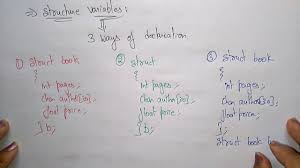 ⇒ Structure variables:
3 Ways of declaration
① struct book
{
int pages;
char author[20];
float price;
} b;
② struct
{
int pages;
char author[20];
float price;
} b;
③ struct book
{
int pages;
char author[20];
float price;
}
struct book b